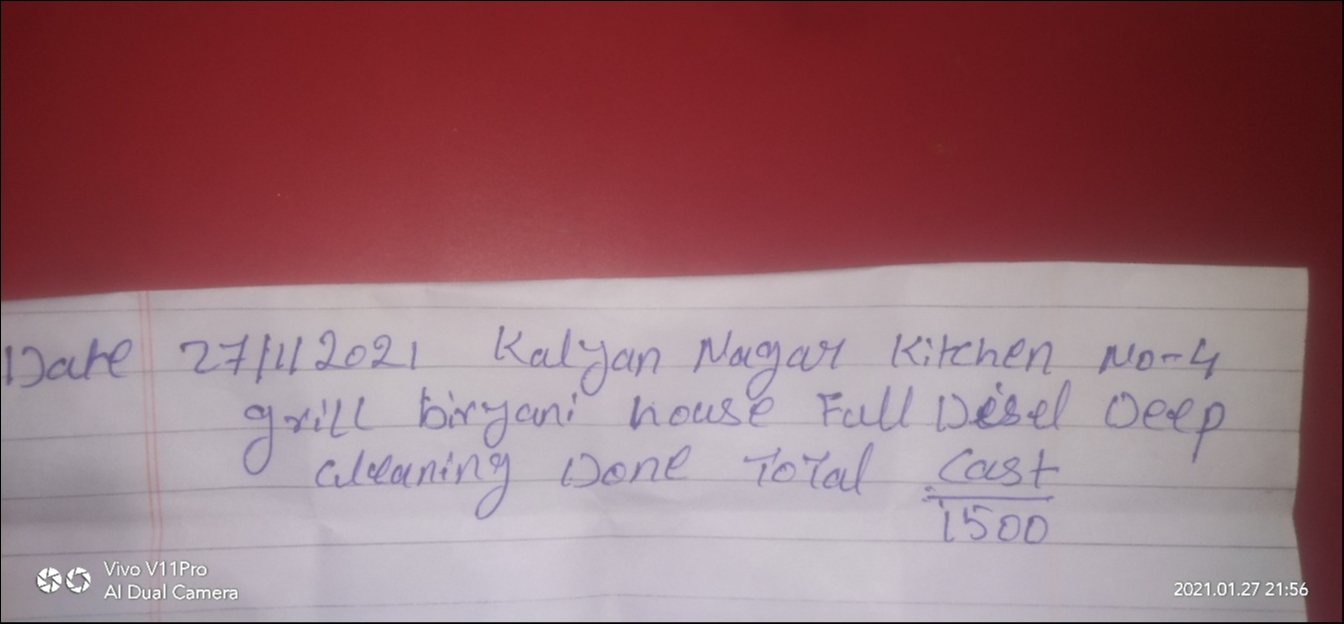 Date 27/1/2021 Kalyan Nagar Kitchen No-4
grill biryani house Full Diesel Deep
cleaning Done Total Cast
1500
Vivo V11Pro
AI Dual Camera
2021.01.27 21:56